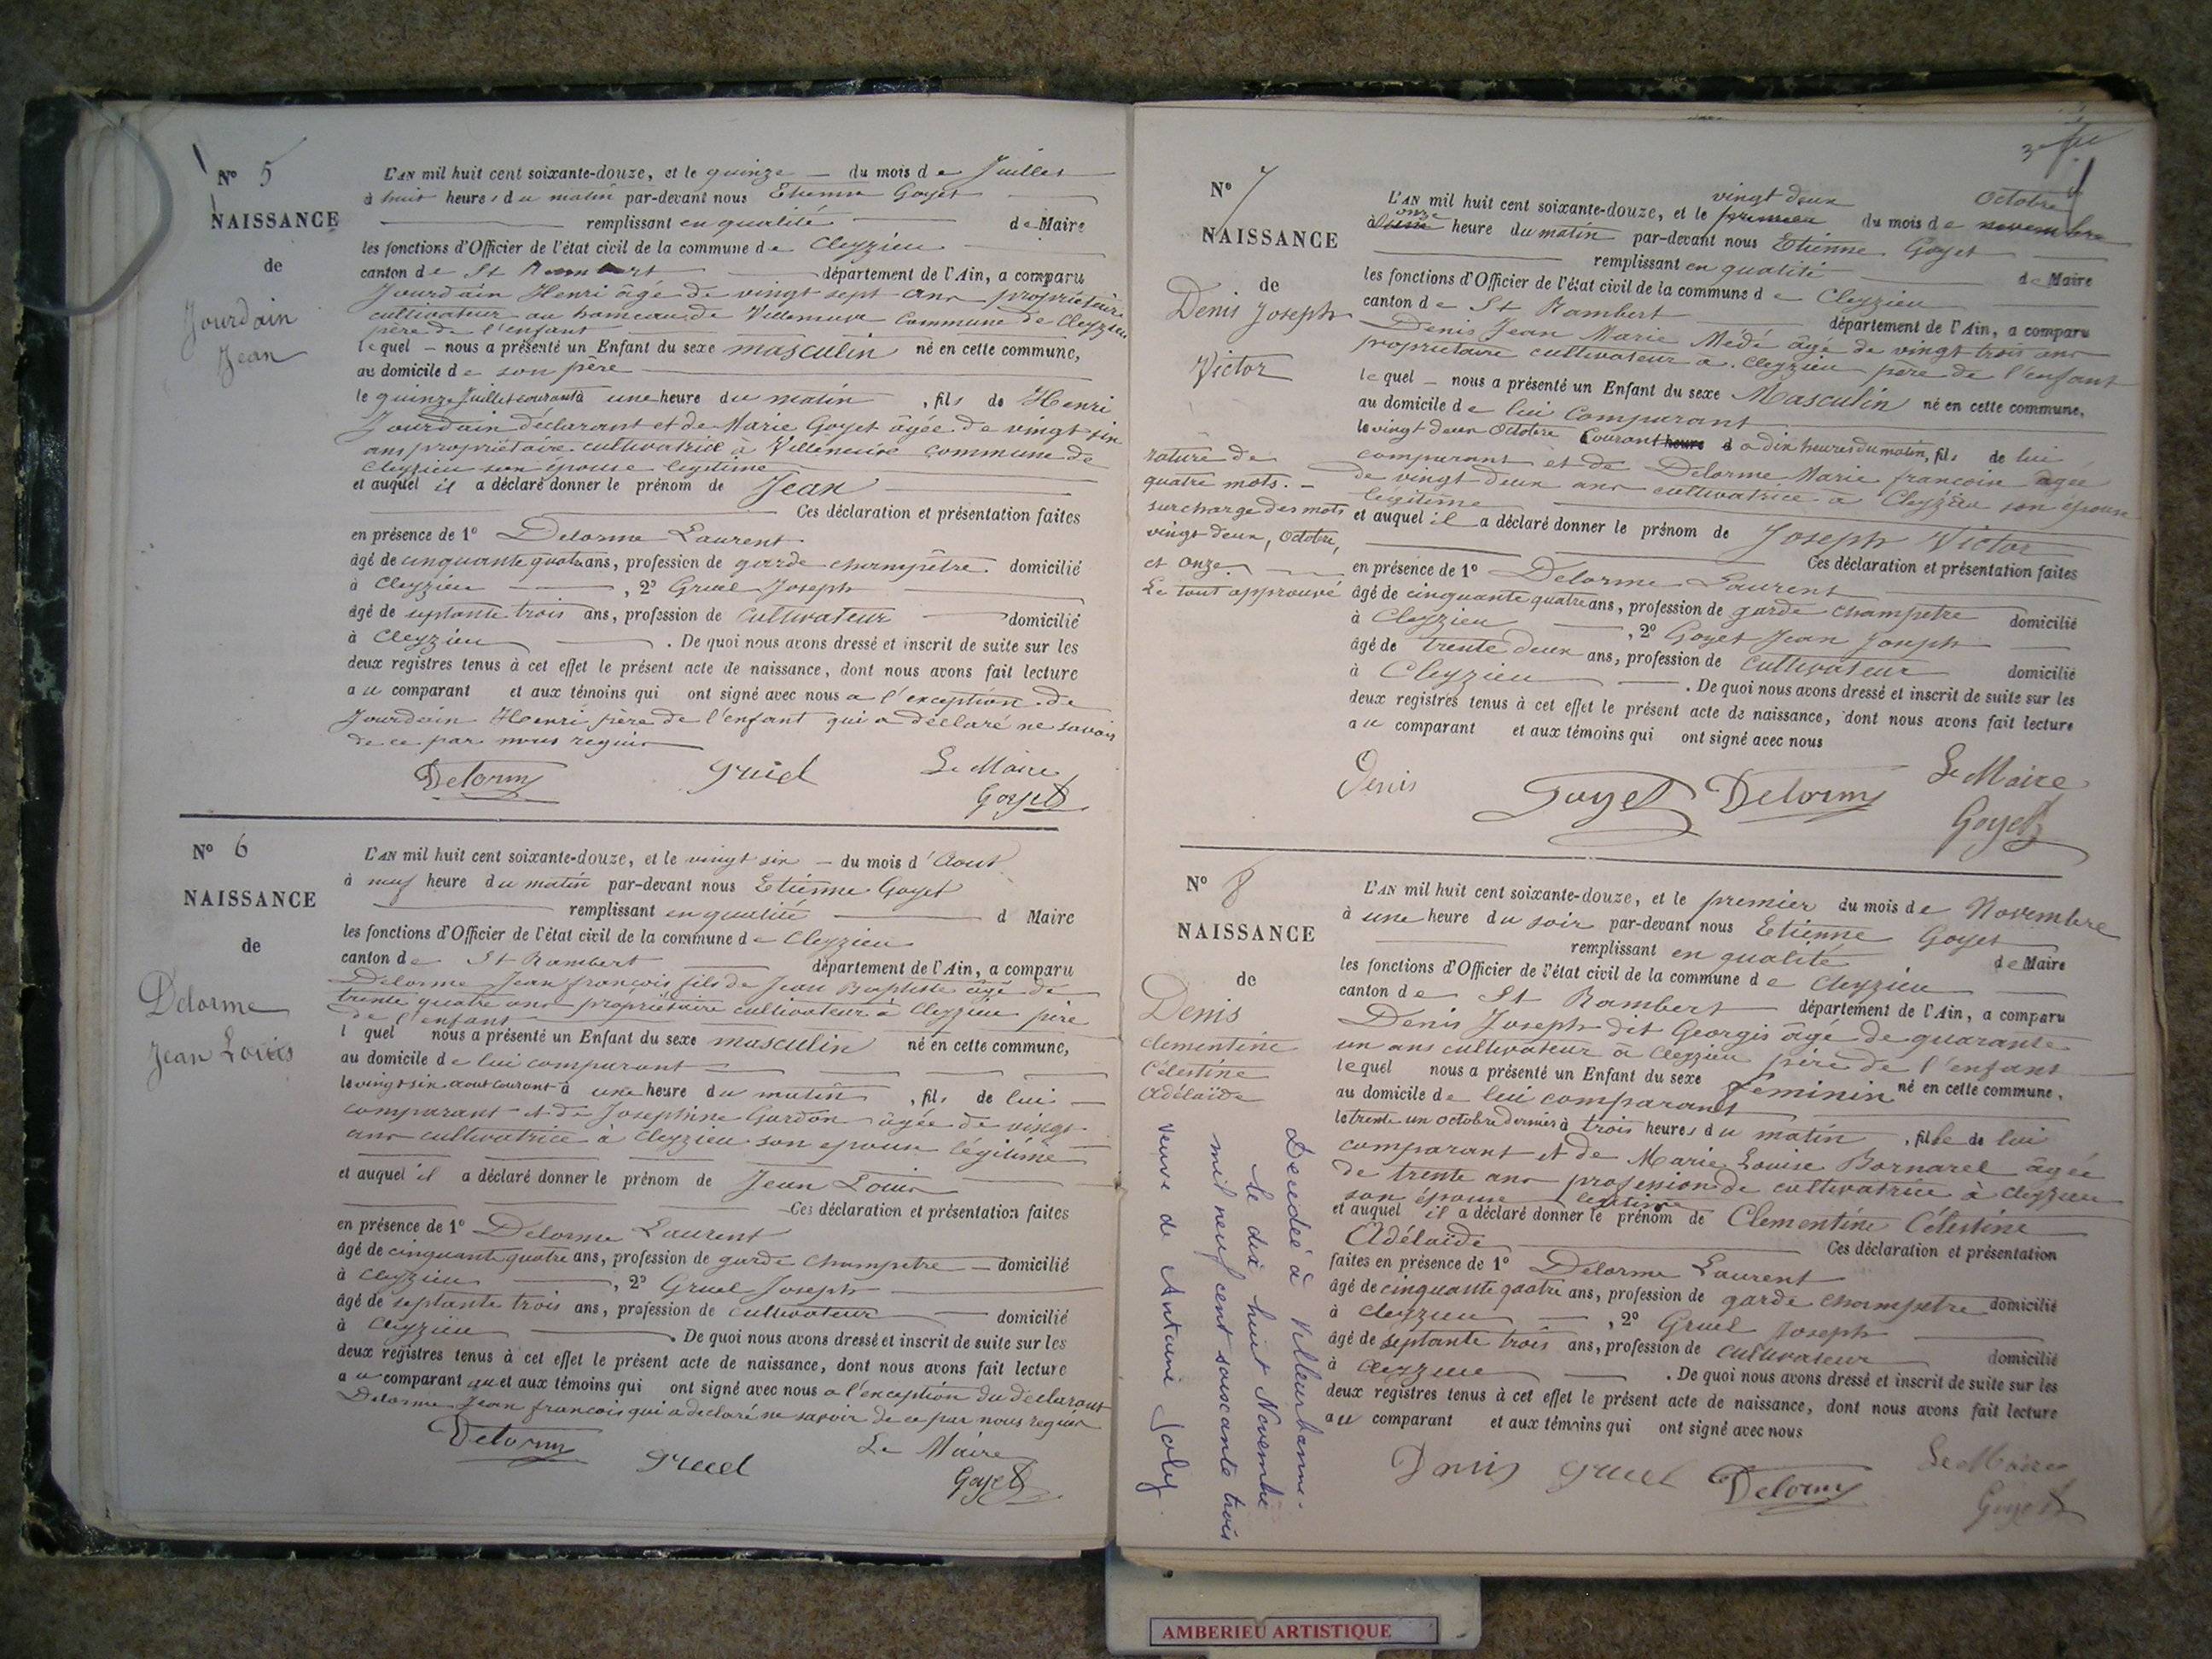 N° 5
NAISSANCE
de
Jourdain
Jean
L'AN mil huit cent soixante-douze, et le quinze — du mois de Juillet
à huit heures du matin par-devant nous Etienne Goyet
remplissant en qualité de Maire
les fonctions d'Officier de l'état civil de la commune de Cleyzieu
canton de St Rambert département de l'Ain, a comparu
Jourdain Henri âgé de vingt sept ans propriétaire
cultivateur au hameau de Villeneuve Commune de Cleyzieu
père de l'enfant
lequel — nous a présenté un Enfant du sexe masculin né en cette commune,
au domicile de son père
le quinze Juillet courant à une heure du matin, fils de Henri
Jourdain déclarant et de Marie Goyet âgée de vingt six
ans propriétaire cultivatrice à Villeneuve commune de
Cleyzieu son épouse légitime
et auquel il a déclaré donner le prénom de Jean
Ces déclaration et présentation faites
en présence de 1° Delorme Laurent
âgé de cinquante quatre ans, profession de garde champêtre domicilié
à Cleyzieu, 2° Gruel Joseph
âgé de septante trois ans, profession de Cultivateur domicilié
à Cleyzieu. De quoi nous avons dressé et inscrit de suite sur les
deux registres tenus à cet effet le présent acte de naissance, dont nous avons fait lecture
au comparant et aux témoins qui ont signé avec nous a l'exception de
Jourdain Henri père de l'enfant qui a déclaré ne savoir
de ce par nous requis
Delorme Gruel Le Maire
Goyet
N° 6
NAISSANCE
de
Delorme
Jean Louis
L'AN mil huit cent soixante-douze, et le vingt six — du mois d'Aout
à neuf heure du matin par-devant nous Etienne Goyet
remplissant en qualité d Maire
les fonctions d'Officier de l'état civil de la commune de Cleyzieu
canton de St Rambert département de l'Ain, a comparu
Delorme Jean francois fils de Jean Baptiste âgé de
trente quatre ans propriétaire cultivateur à Cleyzieu père
de l'enfant
l quel nous a présenté un Enfant du sexe masculin né en cette commune,
au domicile de lui comparant
le vingt six aout courant à une heure du matin, fils de lui
comparant et de Josephine Gardon âgée de vingt
ans cultivatrice à Cleyzieu son epouse légitime
et auquel il a déclaré donner le prénom de Jean Louis
Ces déclaration et présentation faites
en présence de 1° Delorme Laurent
âgé de cinquante quatre ans, profession de garde champetre domicilié
à Cleyzieu, 2° Gruel Joseph
âgé de septante trois ans, profession de cultivateur domicilié
à Cleyzieu. De quoi nous avons dressé et inscrit de suite sur les
deux registres tenus à cet effet le présent acte de naissance, dont nous avons fait lecture
au comparant et aux témoins qui ont signé avec nous a l'exception du déclarant
Delorme Jean francois qui a declaré ne savoir de ce par nous requis
Delorme Gruel Le Maire
Goyet
N° 7
NAISSANCE
de
Denis Joseph
Victor
rature de
quatre mots. —
surcharge des mots
vingt deux, Octobre,
et onze
Le tout approuvé
vingt deux Octobre
L'AN mil huit cent soixante-douze, et le premier du mois de novembre
à onze heure du matin par-devant nous Etienne Goyet
remplissant en qualité de Maire
les fonctions d'Officier de l'état civil de la commune de Cleyzieu
canton de St Rambert département de l'Ain, a comparu
Denis Jean Marie Médé âgé de vingt trois ans
propriétaire cultivateur a Cleyzieu père de l'enfant
lequel — nous a présenté un Enfant du sexe Masculin né en cette commune,
au domicile de lui Comparant
le vingt deux Octobre Courant heure d a dix heures du matin, fils de lui
comparant et de Delorme Marie francoise agée
de vingt deux ans cultivatrice a Cleyzieu son épouse
légitime
et auquel il a déclaré donner le prénom de Joseph Victor
Ces déclaration et présentation faites
en présence de 1° Delorme Laurent
âgé de cinquante quatre ans, profession de garde champetre domicilié
à Cleyzieu, 2° Goyet Jean Joseph
âgé de trente deux ans, profession de Cultivateur domicilié
à Cleyzieu. De quoi nous avons dressé et inscrit de suite sur les
deux registres tenus à cet effet le présent acte de naissance, dont nous avons fait lecture
au comparant et aux témoins qui ont signé avec nous
Denis Goyet Delorme Le Maire
Goyet
N° 8
NAISSANCE
de
Denis
Clementine
Célestine
Adélaïde
Decedée à Villeurbanne.
le dix huit Novembre
mil neuf cent soixante trois
veuve de Antoine Joly.
L'AN mil huit cent soixante-douze, et le premier du mois de Novembre
à une heure du soir par-devant nous Etienne Goyet
remplissant en qualité de Maire
les fonctions d'Officier de l'état civil de la commune de Cleyzieu
canton de St Rambert département de l'Ain, a comparu
Denis Joseph dit Georgis âgé de quarante
un ans cultivateur à Cleyzieu père de l'enfant
lequel nous a présenté un Enfant du sexe féminin né en cette commune,
au domicile de lui comparant
le trente un octobre dernier à trois heures du matin, fille de lui
comparant et de Marie Louise Bornarel âgée
de trente ans profession de cultivatrice à Cleyzieu
son épouse légitime
et auquel il a déclaré donner le prénom de Clementine Célestine
Adélaïde Ces déclaration et présentation
faites en présence de 1° Delorme Laurent
âgé de cinquante quatre ans, profession de garde champetre domicilié
à Cleyzieu, 2° Gruel Joseph
âgé de septante trois ans, profession de cultivateur domicilié
à Cleyzieu. De quoi nous avons dressé et inscrit de suite sur les
deux registres tenus à cet effet le présent acte de naissance, dont nous avons fait lecture
au comparant et aux témoins qui ont signé avec nous
Denis Gruel Delorme Le Maire
Goyet
AMBERIEU ARTISTIQUE